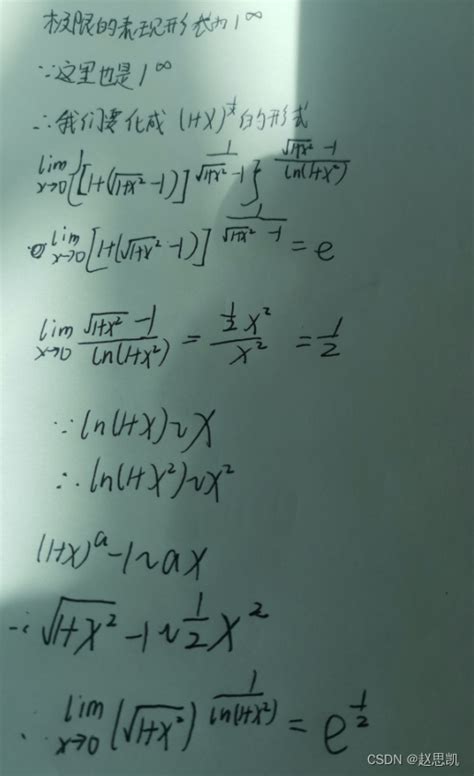 极限的表现形式为 1^∞
∵这里也是 1^∞
∴我们要化成 (1+x)^{1/x} 的形式
lim_{x→0} {[1+(√(1+x²)-1)]^{1/(√(1+x²)-1)}}^{(√(1+x²)-1)/ln(1+x²)}
lim_{x→0} [1+(√(1+x²)-1)]^{1/(√(1+x²)-1)} = e
lim_{x→0} (√(1+x²)-1)/ln(1+x²) = (½x²)/x² = 1/2
∵ln(1+x)~x
∴ln(1+x²)~x²
(1+x)^a-1~ax
∴√(1+x²)-1~½x²
∴lim_{x→0} (√(1+x²))^{1/ln(1+x²)} = e^{1/2}
CSDN @赵思凯